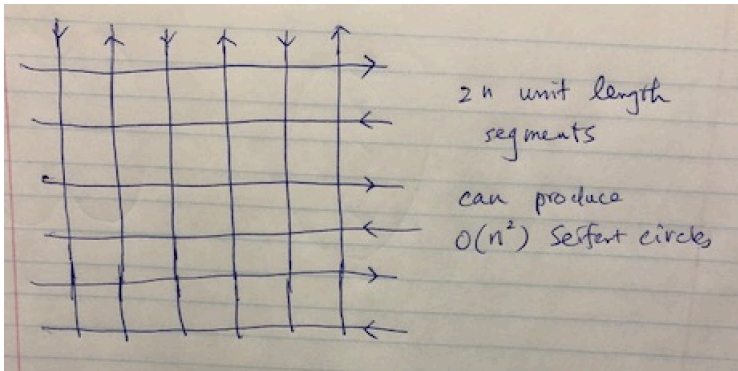 2n unit length
segments
can produce
O(n²) Seifert circles